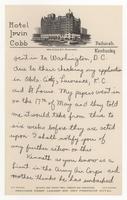 Hotel
Irvin
Cobb
Paducah,
Kentucky
sent in to Washington, D.C.
due to their checking my application
in Oklo. City, Lawrence, K.C.
and St Louis. My papers went in
on the 17th of May and they told
me it would take from three to
six weeks before they are acted
upon. I shall notify you of
any further action on this.
Kenneth as you know is a
Lieut in the Army Air Corps and
mother thinks he has